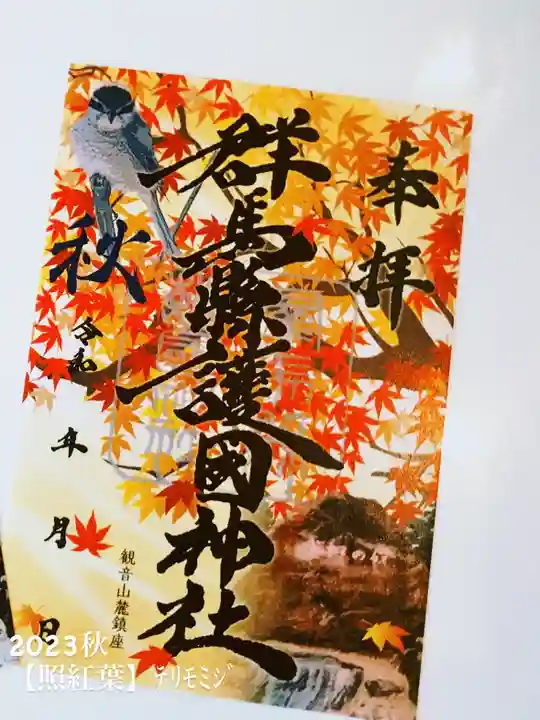 奉拝
群馬縣護國神社
秋
令和 年 月 日
観音山麓鎮座
2023秋
【照紅葉】ﾃﾘﾓﾐｼﾞ